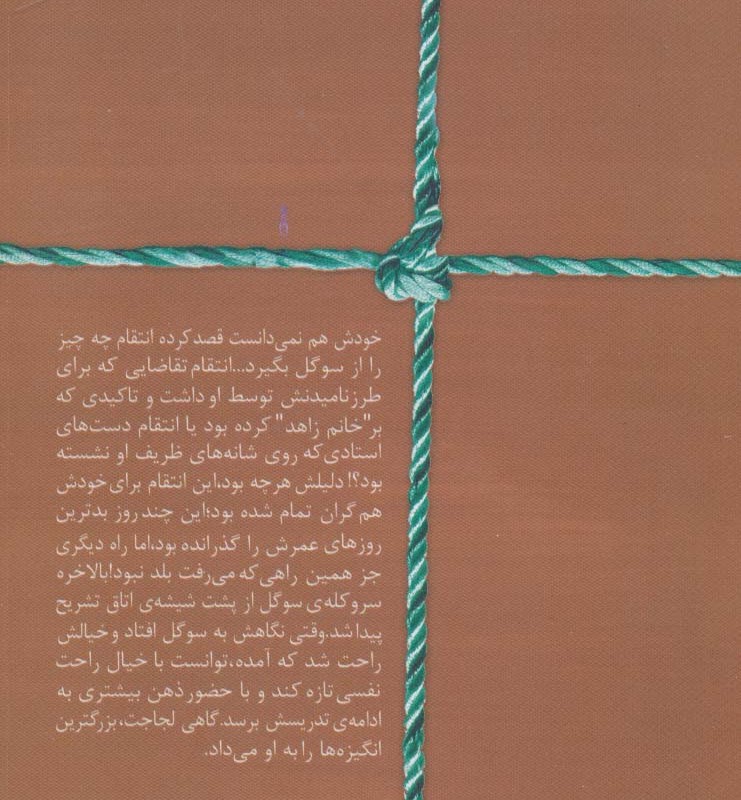 خودش هم نمی‌دانست قصد کرده انتقام چه چیز
را از سوگل بگیرد...انتقام تقاضایی که برای
طرز نامیدنش توسط او داشت و تاکیدی که
بر"خانم زاهد" کرده بود یا انتقام دست‌های
استادی که روی شانه‌های ظریف او نشسته
بود؟! دلیلش هرچه بود،این انتقام برای خودش
هم گران تمام شده بود؛این چند روز بدترین
روزهای عمرش را گذرانده بود،اما راه دیگری
جز همین راهی که می‌رفت بلد نبود!بالاخره
سروکله‌ی سوگل از پشت شیشه‌ی اتاق تشریح
پیدا شد.وقتی نگاهش به سوگل افتاد و خیالش
راحت شد که آمده،توانست با خیال راحت
نفسی تازه کند و با حضور ذهن بیشتری به
ادامه‌ی تدریسش برسد.گاهی لجاجت،بزرگترین
انگیزه‌ها را به او می‌داد.